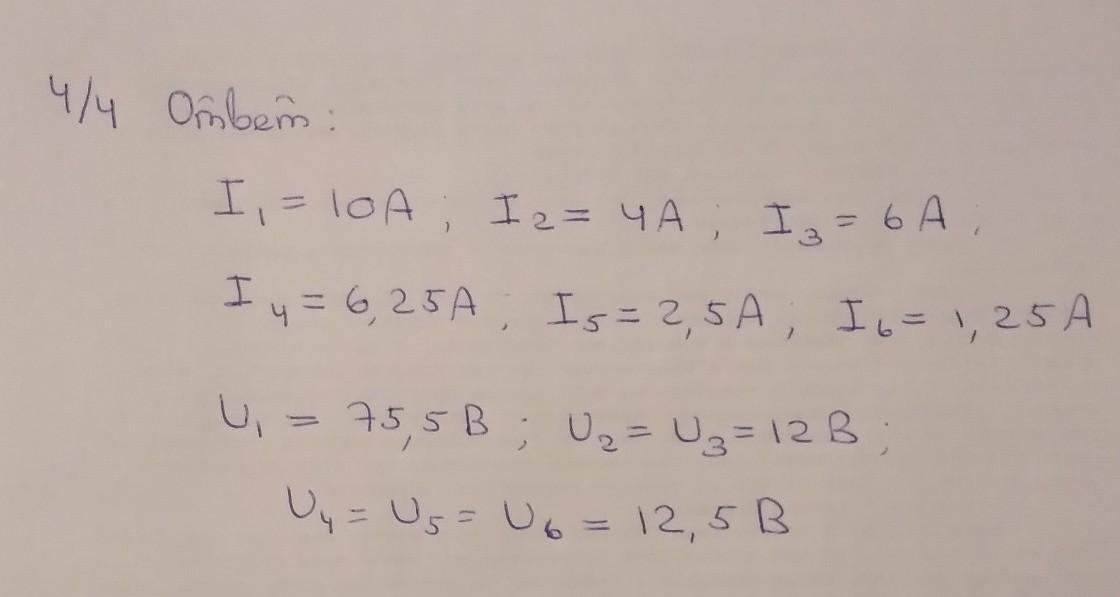 4/4 Ответ:
I₁ = 10A ; I₂ = 4A ; I₃ = 6A ;
I₄ = 6,25A ; I₅ = 2,5A ; I₆ = 1,25A
U₁ = 75,5 B ; U₂ = U₃ = 12 B ;
U₄ = U₅ = U₆ = 12,5 B